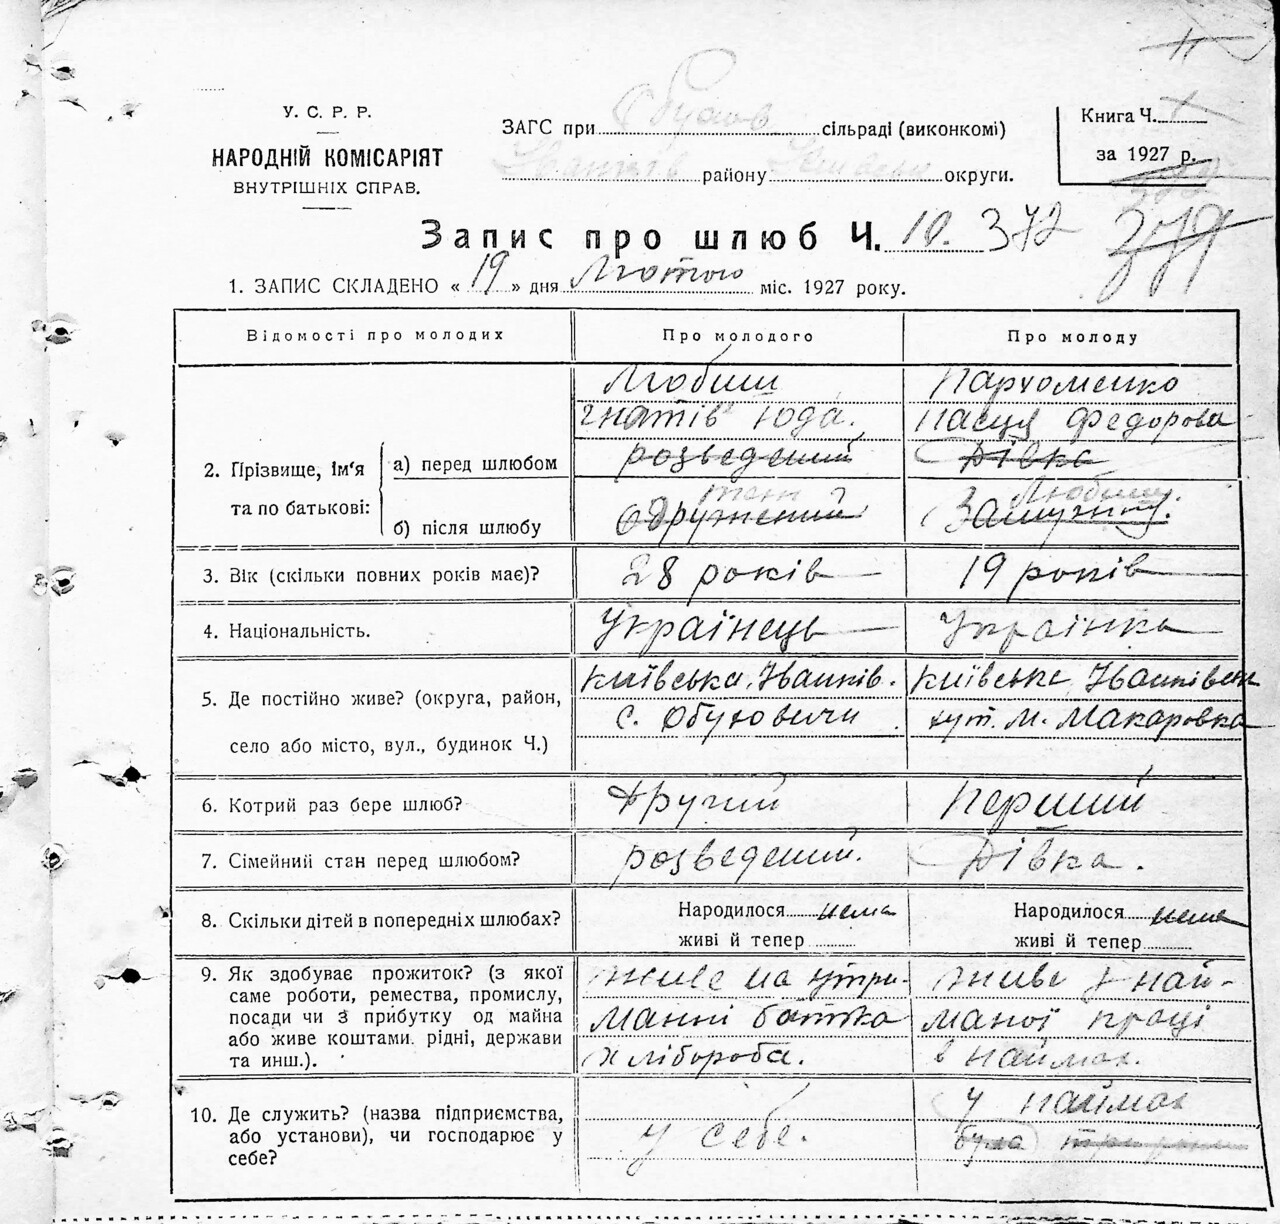 У. С. Р. Р.
НАРОДНІЙ КОМІСАРІЯТ
ВНУТРІШНІХ СПРАВ.
ЗАГС при Обухов сільраді (виконкомі)
Іванків району Київська округи.
Книга Ч.
за 1927 р.
Запис про шлюб Ч. 10. 372
379
1. ЗАПИС СКЛАДЕНО « 19 » дня Лютого міс. 1927 року.
Відомості про молодих Про молодого Про молоду
2. Прізвище, ім'я та по батькові:
а) перед шлюбом
Любиш
гнатів юда.
розведений
Пархоменко
Федорова
Дівка
б) після шлюбу
одружений
Любиш.
3. Вік (скільки повних років має)? 28 років 19 років
4. Національність. Українець Українка
5. Де постійно живе? (округа, район,
село або місто, вул., будинок Ч.)
київська, Іванків.
с. Обуховичи
київська, Іванківськ
хут. М. Макаровка
6. Котрий раз бере шлюб? другий перший
7. Сімейний стан перед шлюбом? розведений. Дівка.
8. Скільки дітей в попередніх шлюбах?
Народилося нема
живі й тепер
Народилося нема
живі й тепер
9. Як здобуває прожиток? (з якої
саме роботи, ремества, промислу,
посади чи з прибутку од майна
або живе коштами рідні, держави
та инш.).
живе на утри-
манні батька
хлібороба.
живе з най-
маної праці
в наймах.
10. Де служить? (назва підприємства,
або установи), чи господарює у
себе?
у себе.
у наймах
була